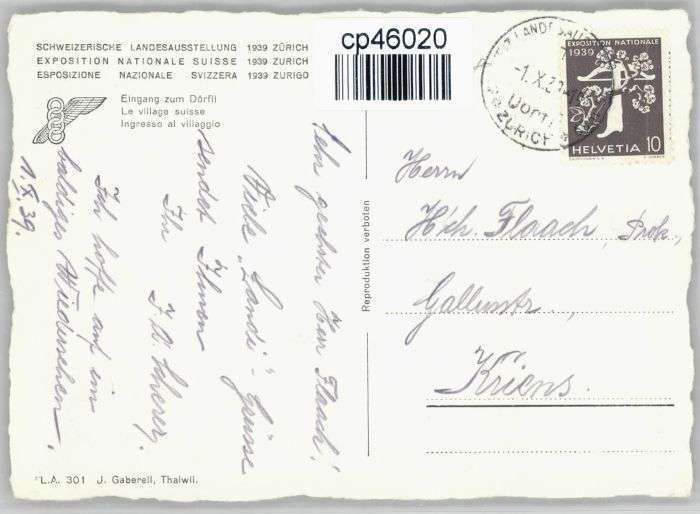 SCHWEIZERISCHE LANDESAUSSTELLUNG 1939 ZÜRICH
EXPOSITION NATIONALE SUISSE 1939 ZURICH
ESPOSIZIONE NAZIONALE SVIZZERA 1939 ZURIGO
Eingang zum Dörfli
Le village suisse
Ingresso al villaggio
cp46020
EXPOSITION NATIONALE
1939
HELVETIA 10
ZÜRICH
Sehr geehrter Herr Flaach!
Viele „Landi"-Grüsse
sendet Ihnen
Ihr
Scherer,
Ich hoffe auf ein
baldiges Wiedersehen.
1.X.39.
Reproduktion verboten
Herrn
Hch. Flaach, Prok.,
Gallusstr.,
Kriens.
L.A. 301 J. Gaberell, Thalwil.